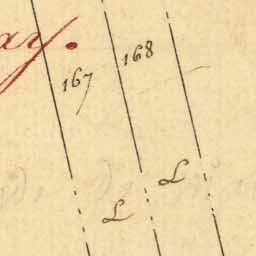 ay.
167
168
L
L